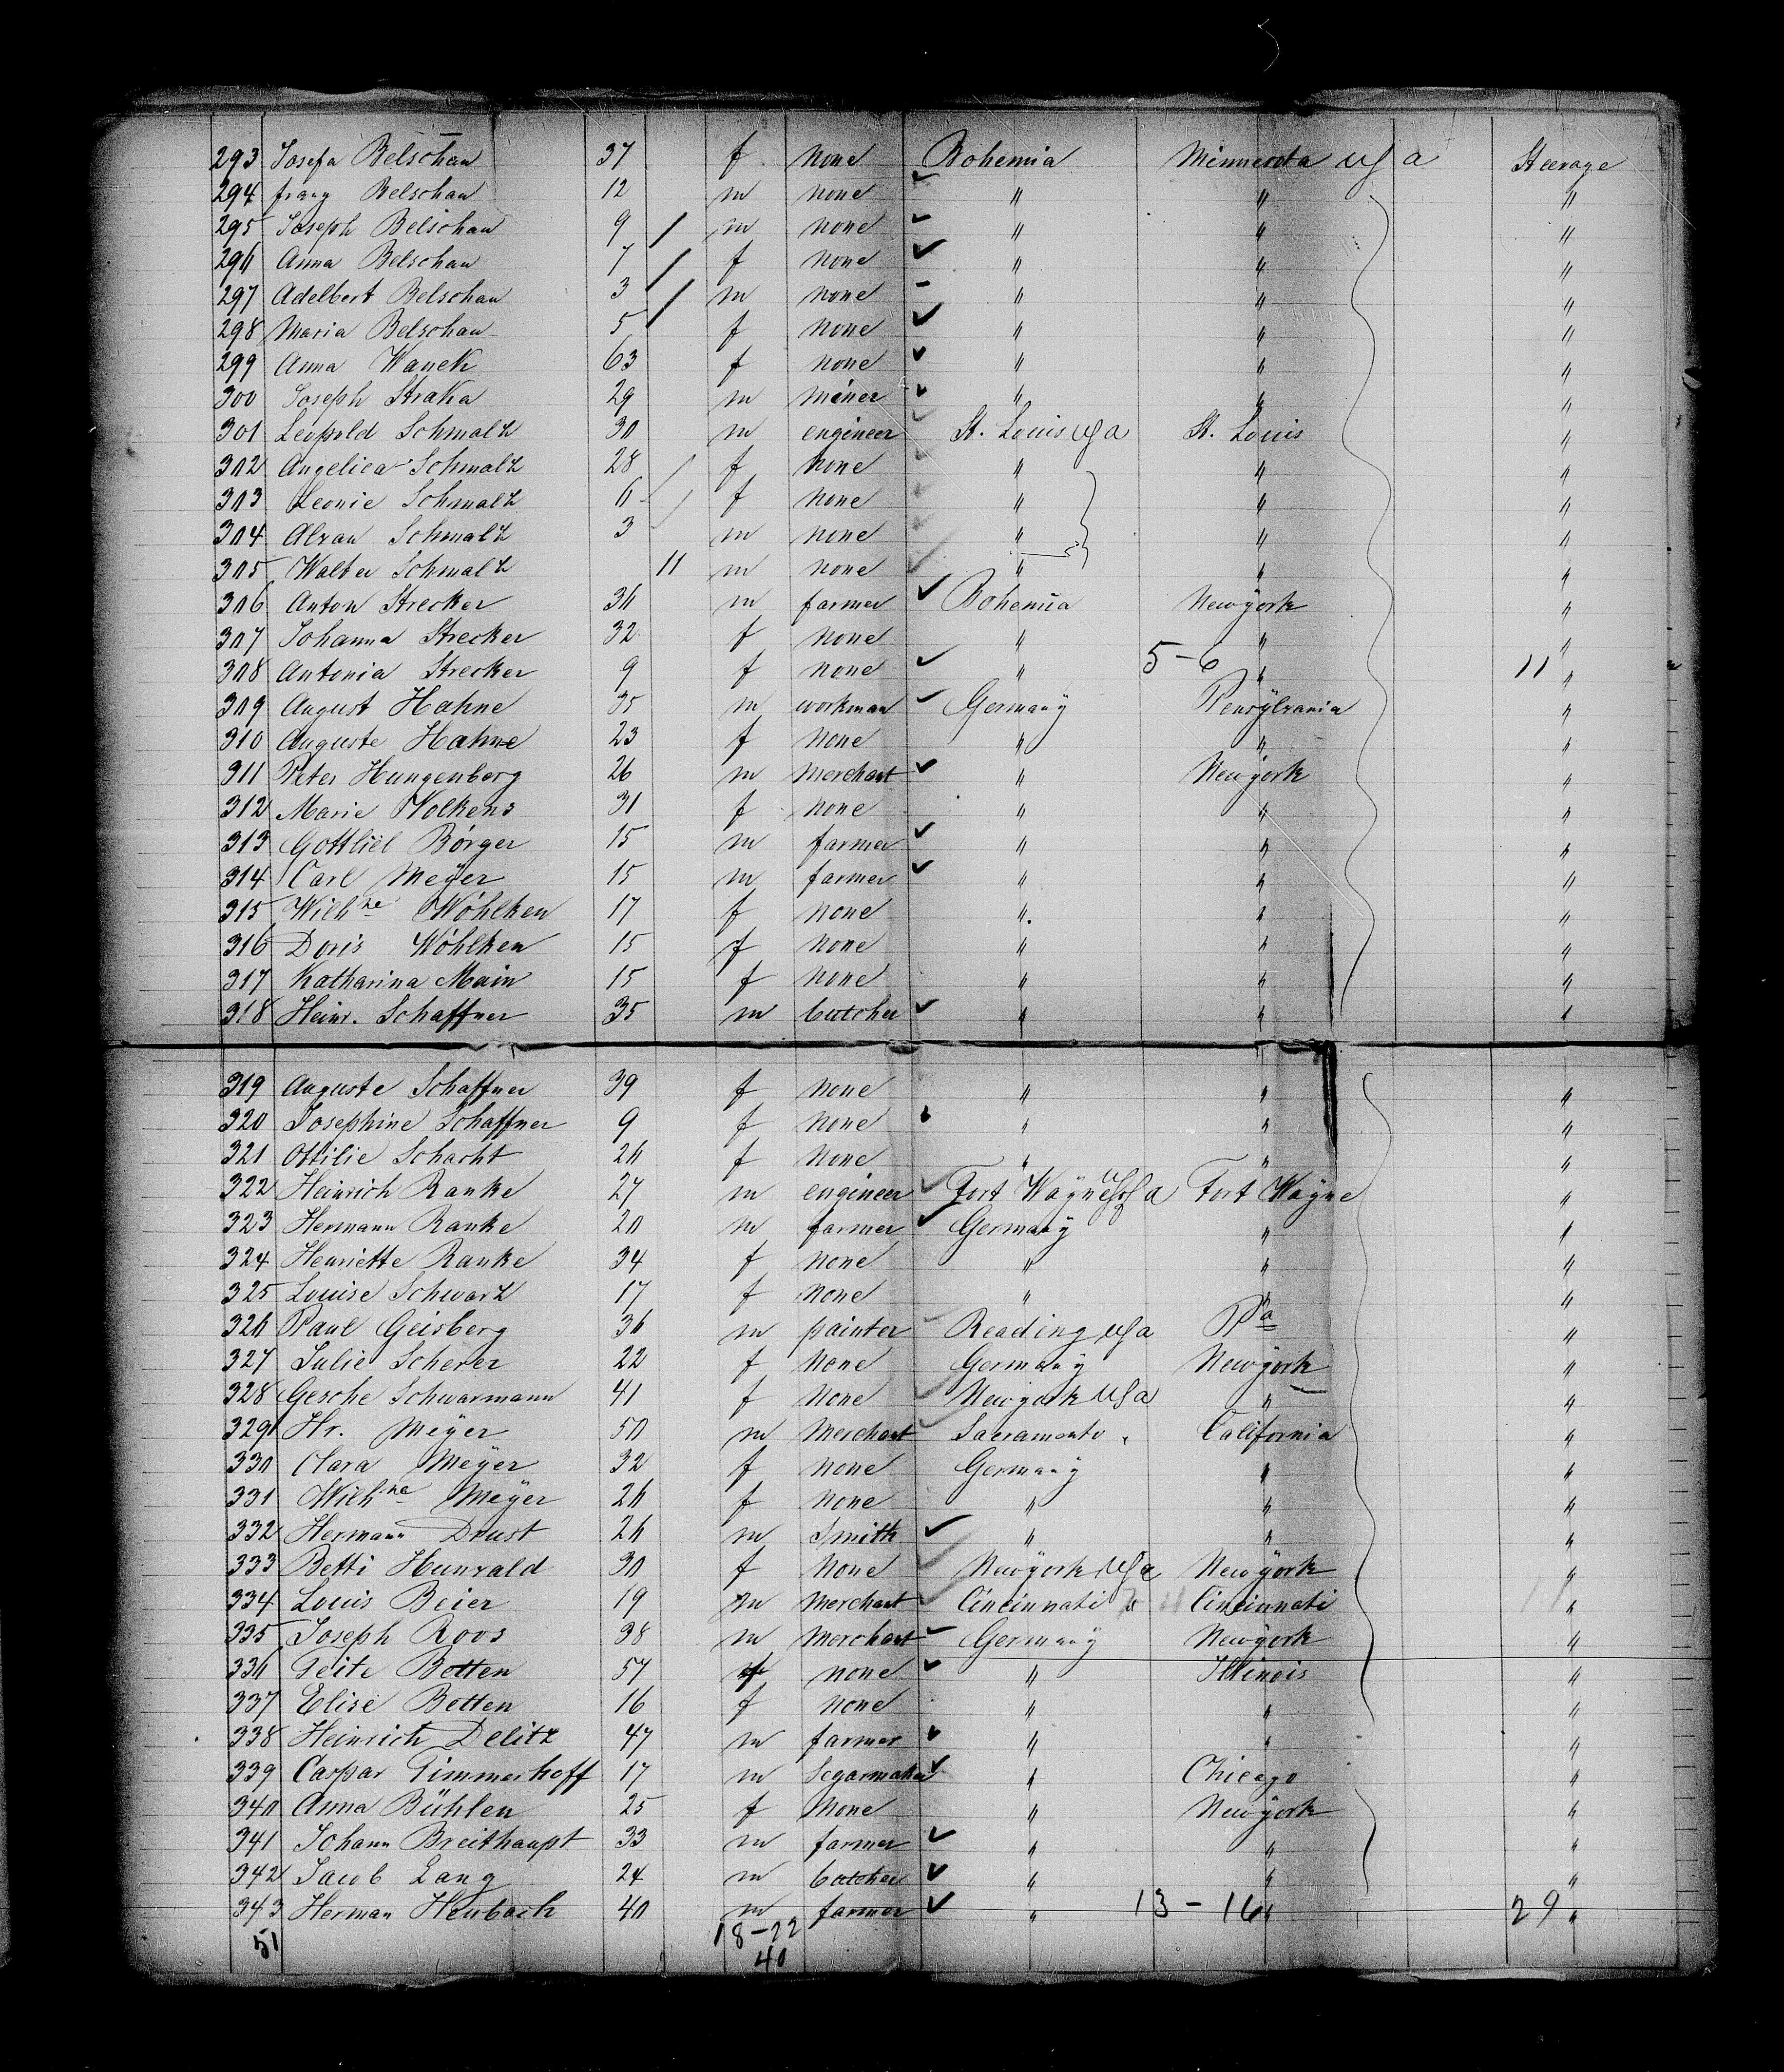 293 Josefa Belschan 37 f none Bohemia Minnesota USA Steerage
294 franz Belschan 12 m none " " "
295 Joseph Belschan 9 m none " " "
296 Anna Belschan 7 f none " " "
297 Adelbert Belschan 3 m none " " "
298 Maria Belschan 5 f none " " "
299 Anna Wanek 63 f none " " "
300 Joseph Straka 29 m miner " " "
301 Leopold Schmalz 30 m engineer St. Louis USA St. Louis "
302 Angelica Schmalz 28 f none " " "
303 Leonie Schmalz 6 f none " " "
304 Schmalz 3 m none " " "
305 Walter Schmalz 11 m none " " "
306 Anton Strecker 36 m farmer Bohemia Newyork "
307 Johanna Strecker 32 f none " " "
308 Antonia Strecker 9 f none " 5-6 " 11 "
309 August Hahne 35 m workman Germany Pensylvania "
310 Auguste Hahne 23 f none " " "
311 Peter Hungenberg 26 m merchant " Newyork "
312 Marie Wolkens 31 f none " " "
313 Gottlieb Börger 15 m farmer " " "
314 Carl Meyer 15 m farmer " " "
315 Wilhne Wöhlken 17 f none " " "
316 Doris Wöhlken 15 f none " " "
317 Katharina Main 15 f none " " "
318 Heinr. Schaffner 35 m butcher " " "
319 Auguste Schaffner 39 f none " " "
320 Josephine Schaffner 9 f none " " "
321 Ottilie Schacht 26 f none " " "
322 Heinrich Ranke 27 m engineer Fort Wayne USA Fort Wayne "
323 Hermann Ranke 20 m farmer Germany " "
324 Henriette Ranke 34 f none " " "
325 Louise Schwarz 17 f none " " "
326 Paul Geisberg 36 m painter Reading USA Pa "
327 Julie Scherer 22 f none Germany Newyork "
328 Gesche Schwarmann 41 f none Newyork USA " "
329 Hr. Meyer 50 m Merchant Sacramento " California "
330 Clara Meyer 32 f none Germany " "
331 Wilhne Meyer 26 f none " " "
332 Hermann Drust 26 m Smith " " "
333 Betti Hunvald 30 f none Newyork USA Newyork "
334 Louis Beier 19 m merchant Cincinnati Cincinnati "
335 Joseph Roos 38 m merchant Germany Newyork "
336 Botten 57 f none " Illinois "
337 Elise Botten 16 f none " " "
338 Heinrich Delitz 47 m farmer " " "
339 Caspar Timmerhoff 17 m Segarmaker " Chicago "
340 Anna Bühlen 25 f none " Newyork "
341 Johann Breithaupt 33 m farmer " " "
342 Jacob Lang 24 m butcher " " "
343 Herman Heubach 40 m farmer " 13-16 " 29 "
51 18-22
40